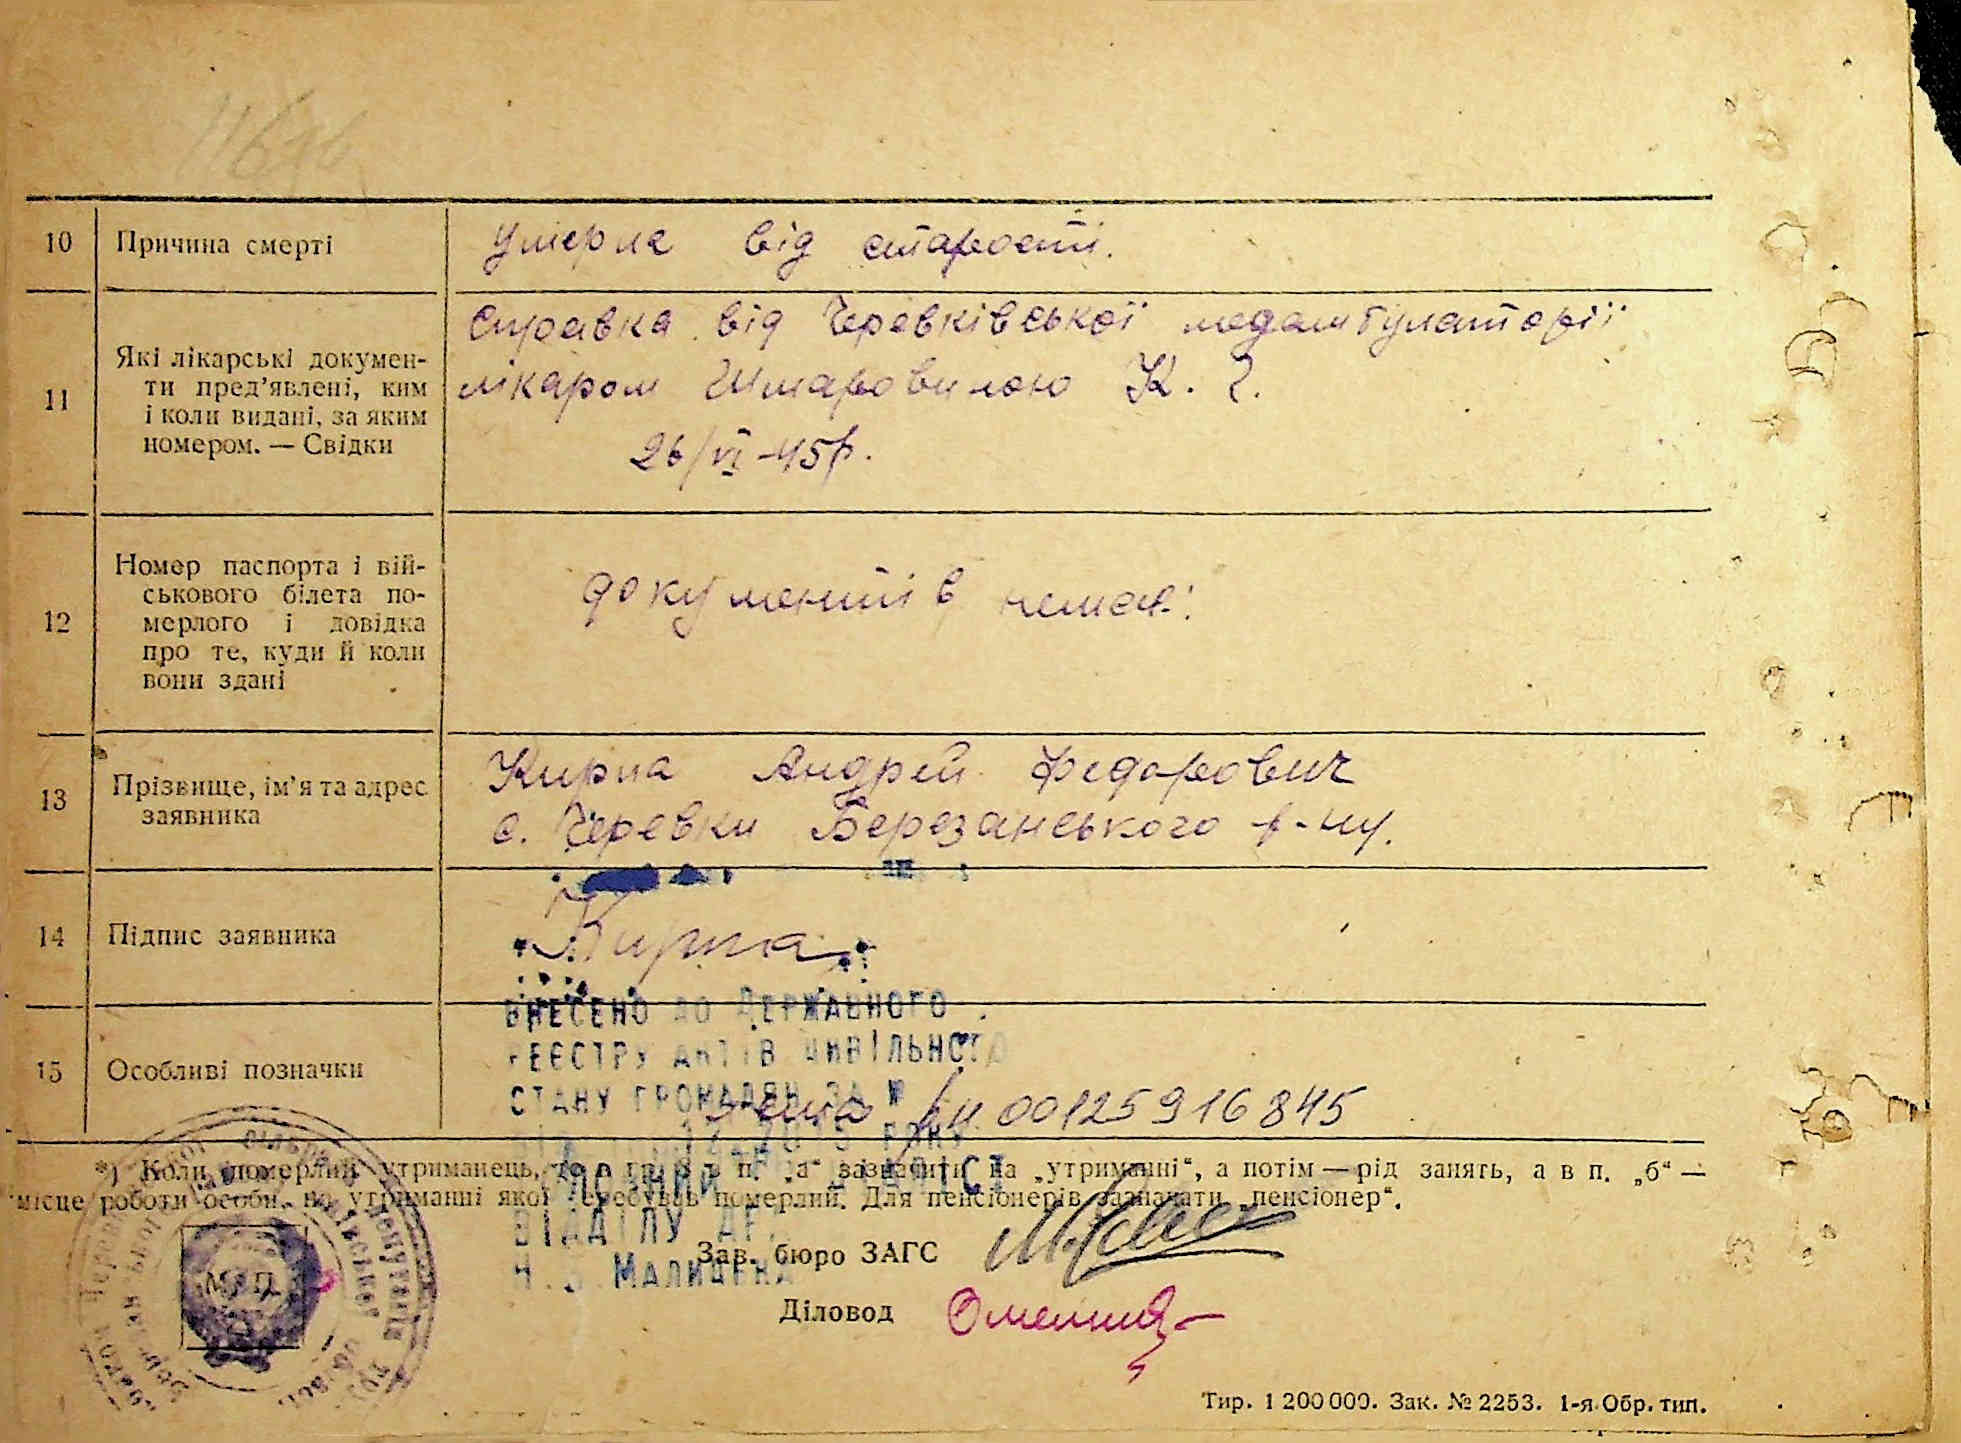 10 Причина смерті
Умерла від старості.
11 Які лікарські докумен-
ти пред’явлені, ким
і коли видані, за яким
номером. — Свідки
Справка від Черевківської медамбулаторії
лікаром К.
26/VI-45р.
12 Номер паспорта і вій-
ськового білета по-
мерлого і довідка
про те, куди й коли
вони здані
документів немає.
13 Прізвище, ім’я та адрес
заявника
Кирпа Андрей Федорович
с. Черевки Березанського р-ну.
14 Підпис заявника
Кирпа
15 Особливі позначки
ВНЕСЕНО ДО ДЕРЖАВНОГО
РЕЄСТРУ АКТІВ ЦИВІЛЬНОГО
СТАНУ ГРОМАДЯН ЗА №
00125916845
РОКУ
*) Коли померлий утриманець, то в гр. в п. „а“ зазначити „на утриманні“, а потім — рід занять, а в п. „б“ —
місце роботи особи, на утриманні якої перебував померлий. Для пенсіонерів зазначати „пенсіонер“.
ВІДДІЛУ
Зав. бюро ЗАГС
М.П.
Діловод
Тир. 1 200 000. Зак. № 2253. 1-я Обр. тип.